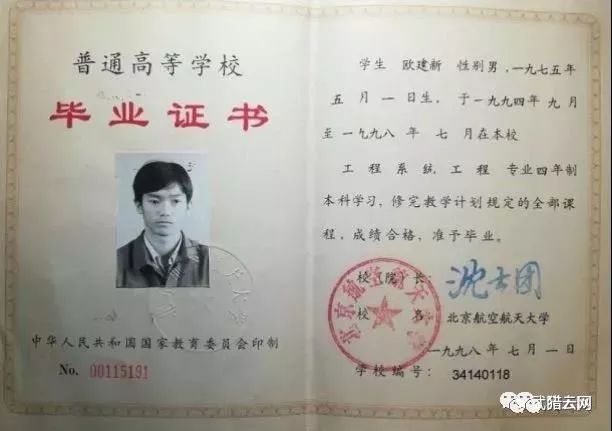 普通高等学校
毕业证书
中华人民共和国国家教育委员会印制
No. 00115191
学生 欧建新 性别男,一九七五年
五月一日生,于一九九四年九月
至一九九八年七月在本校
工程系统工程 专业四年制
本科学习,修完教学计划规定的全部课
程,成绩合格,准予毕业。
校(院)长: 沈士团
校名 北京航空航天大学
一九九八年七月一日
学校编号: 34140118
北京航空航天大学
武猎去网